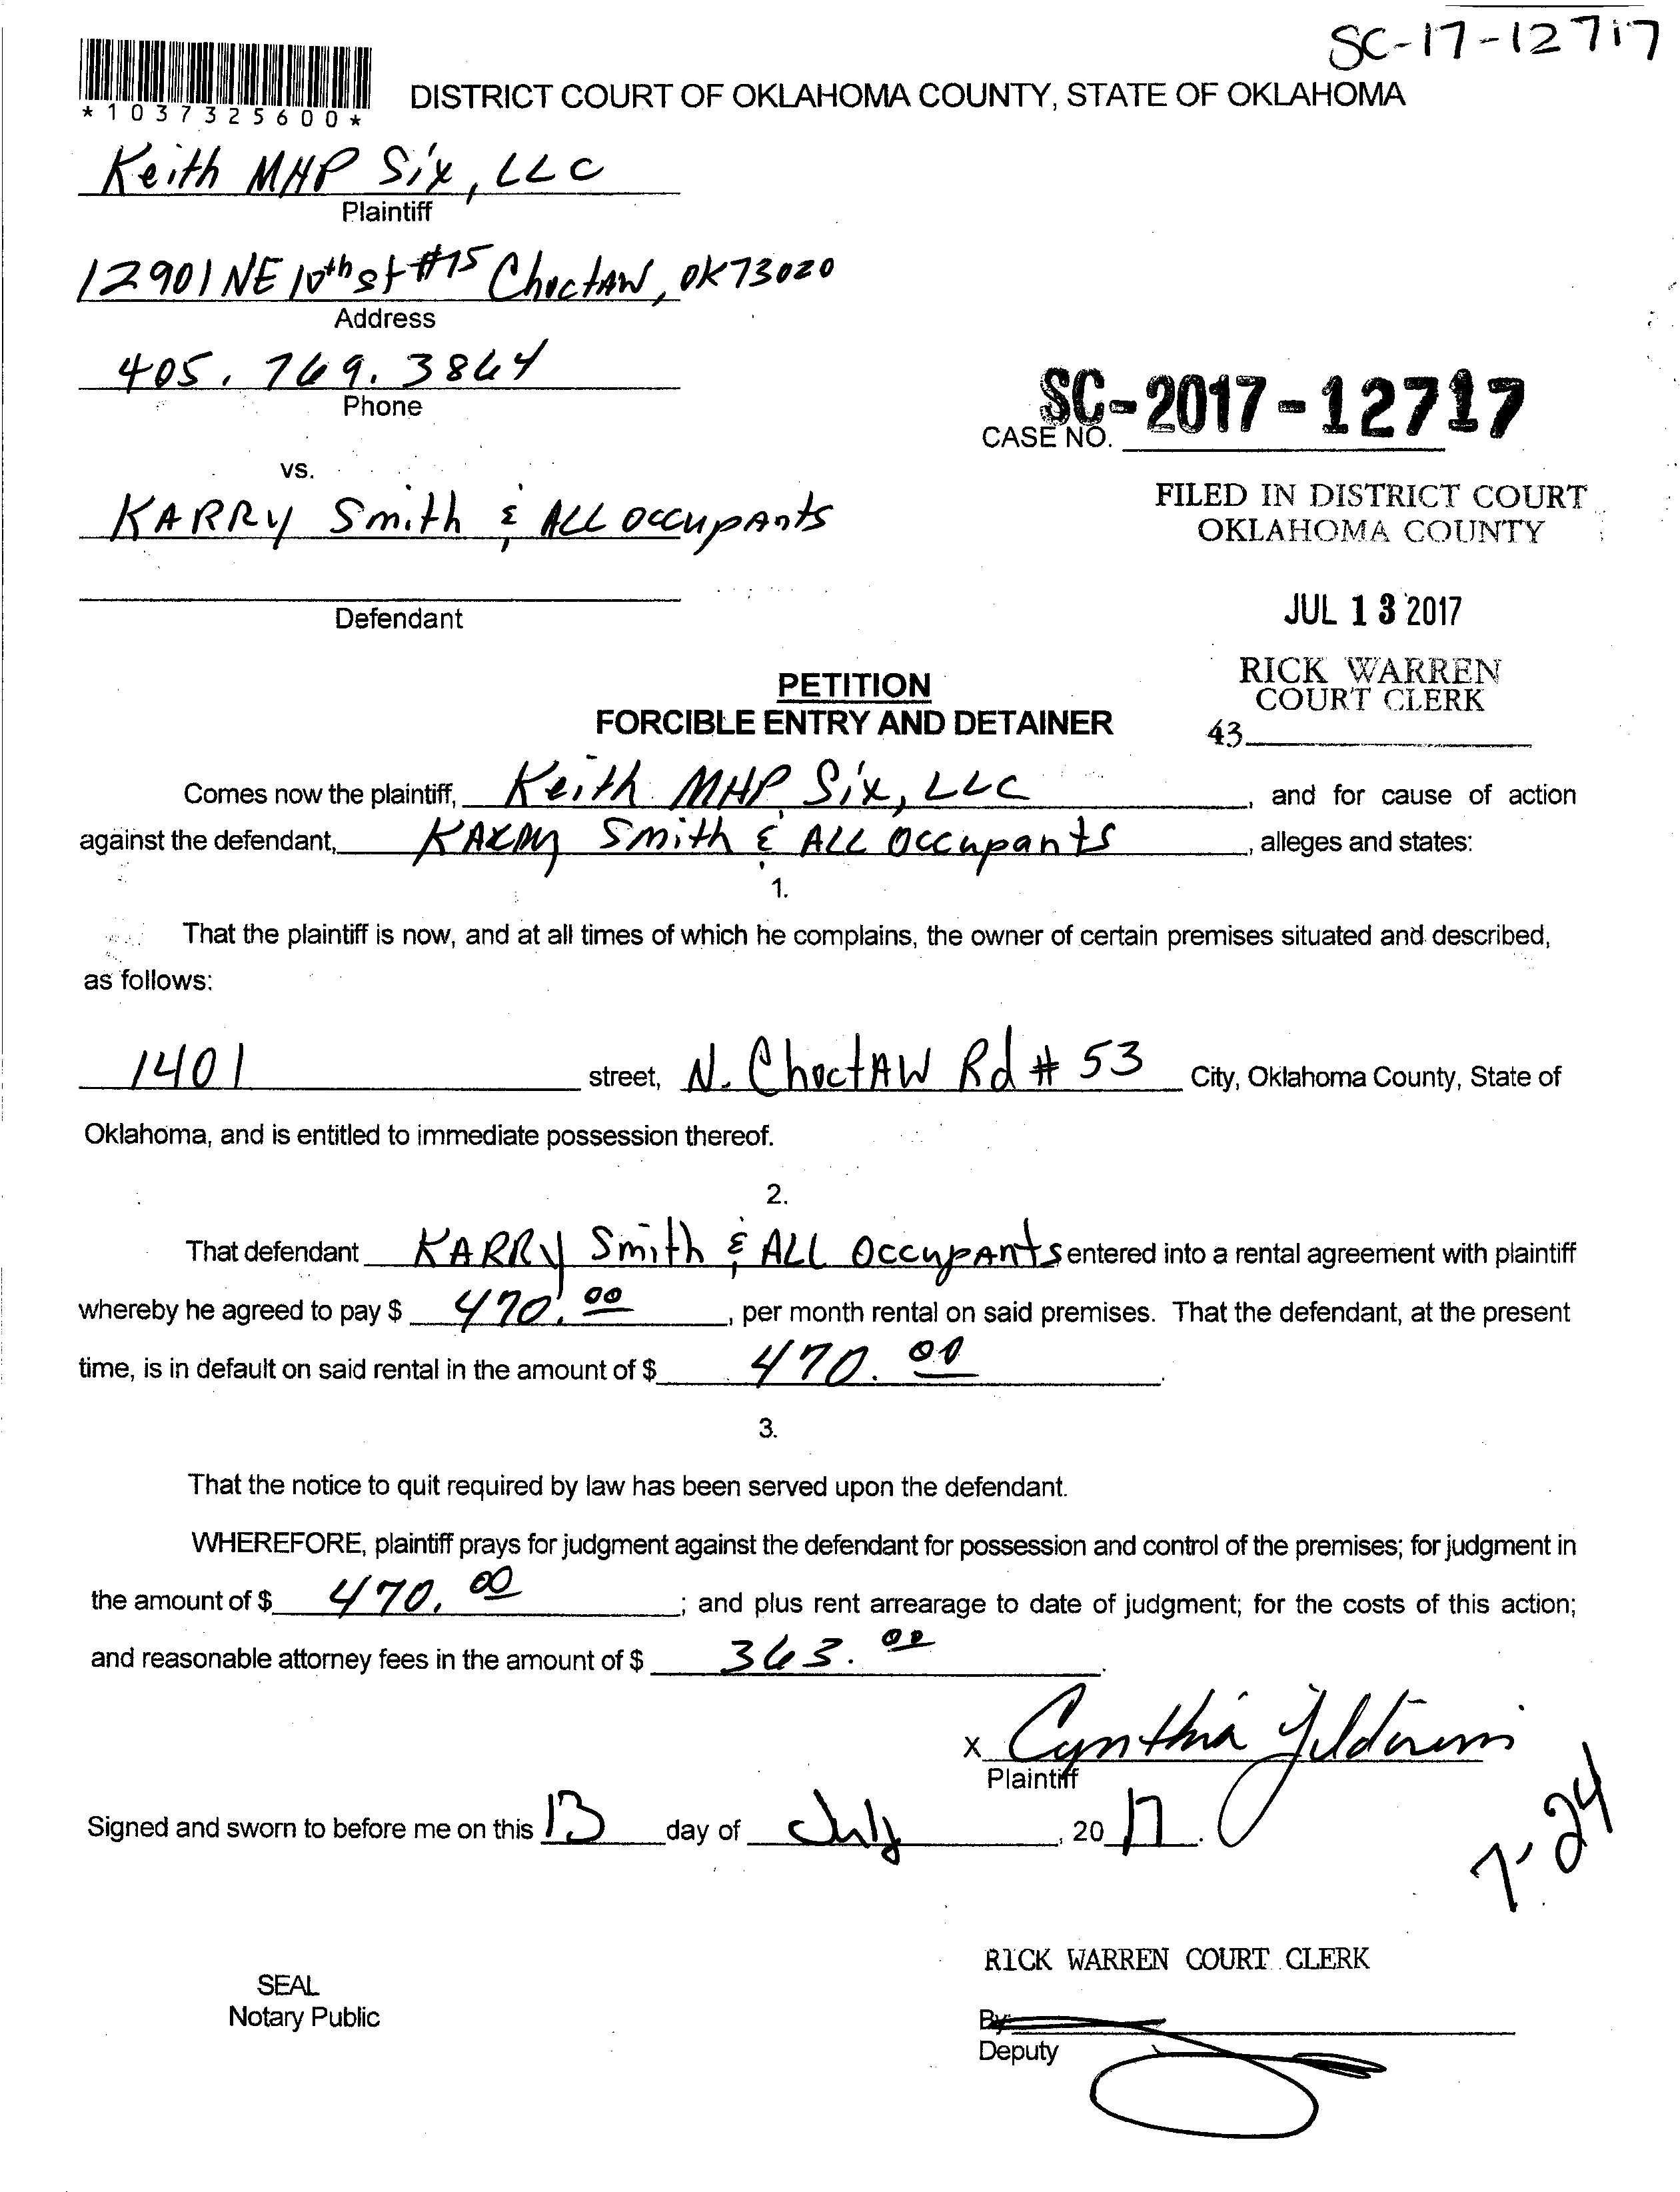 SC-17-12717
*1037325600*
DISTRICT COURT OF OKLAHOMA COUNTY, STATE OF OKLAHOMA
Keith MHP Six, LLC
Plaintiff
12901 NE 10th st #15 Choctaw, OK 73020
Address
405. 769. 3864
Phone
SC-2017-12717
CASE NO.
vs.
KARRY Smith & ALL occupants
FILED IN DISTRICT COURT
OKLAHOMA COUNTY
Defendant
JUL 13 2017
RICK WARREN
COURT CLERK
43
PETITION
FORCIBLE ENTRY AND DETAINER
Comes now the plaintiff, Keith MHP Six, LLC, and for cause of action
against the defendant, Smith & ALL Occupants, alleges and states:
1.
That the plaintiff is now, and at all times of which he complains, the owner of certain premises situated and described,
as follows:
1401 street, N. Choctaw Rd # 53 City, Oklahoma County, State of
Oklahoma, and is entitled to immediate possession thereof.
2.
That defendant KARRY Smith & ALL Occupants entered into a rental agreement with plaintiff
whereby he agreed to pay $ 470.00, per month rental on said premises. That the defendant, at the present
time, is in default on said rental in the amount of $ 470.00.
3.
That the notice to quit required by law has been served upon the defendant.
WHEREFORE, plaintiff prays for judgment against the defendant for possession and control of the premises; for judgment in
the amount of $ 470.00; and plus rent arrearage to date of judgment; for the costs of this action;
and reasonable attorney fees in the amount of $ 363.00.
X Cynthia
Plaintiff
Signed and sworn to before me on this 13 day of July, 2017.
7-24
RICK WARREN COURT CLERK
SEAL
Notary Public
By:
Deputy